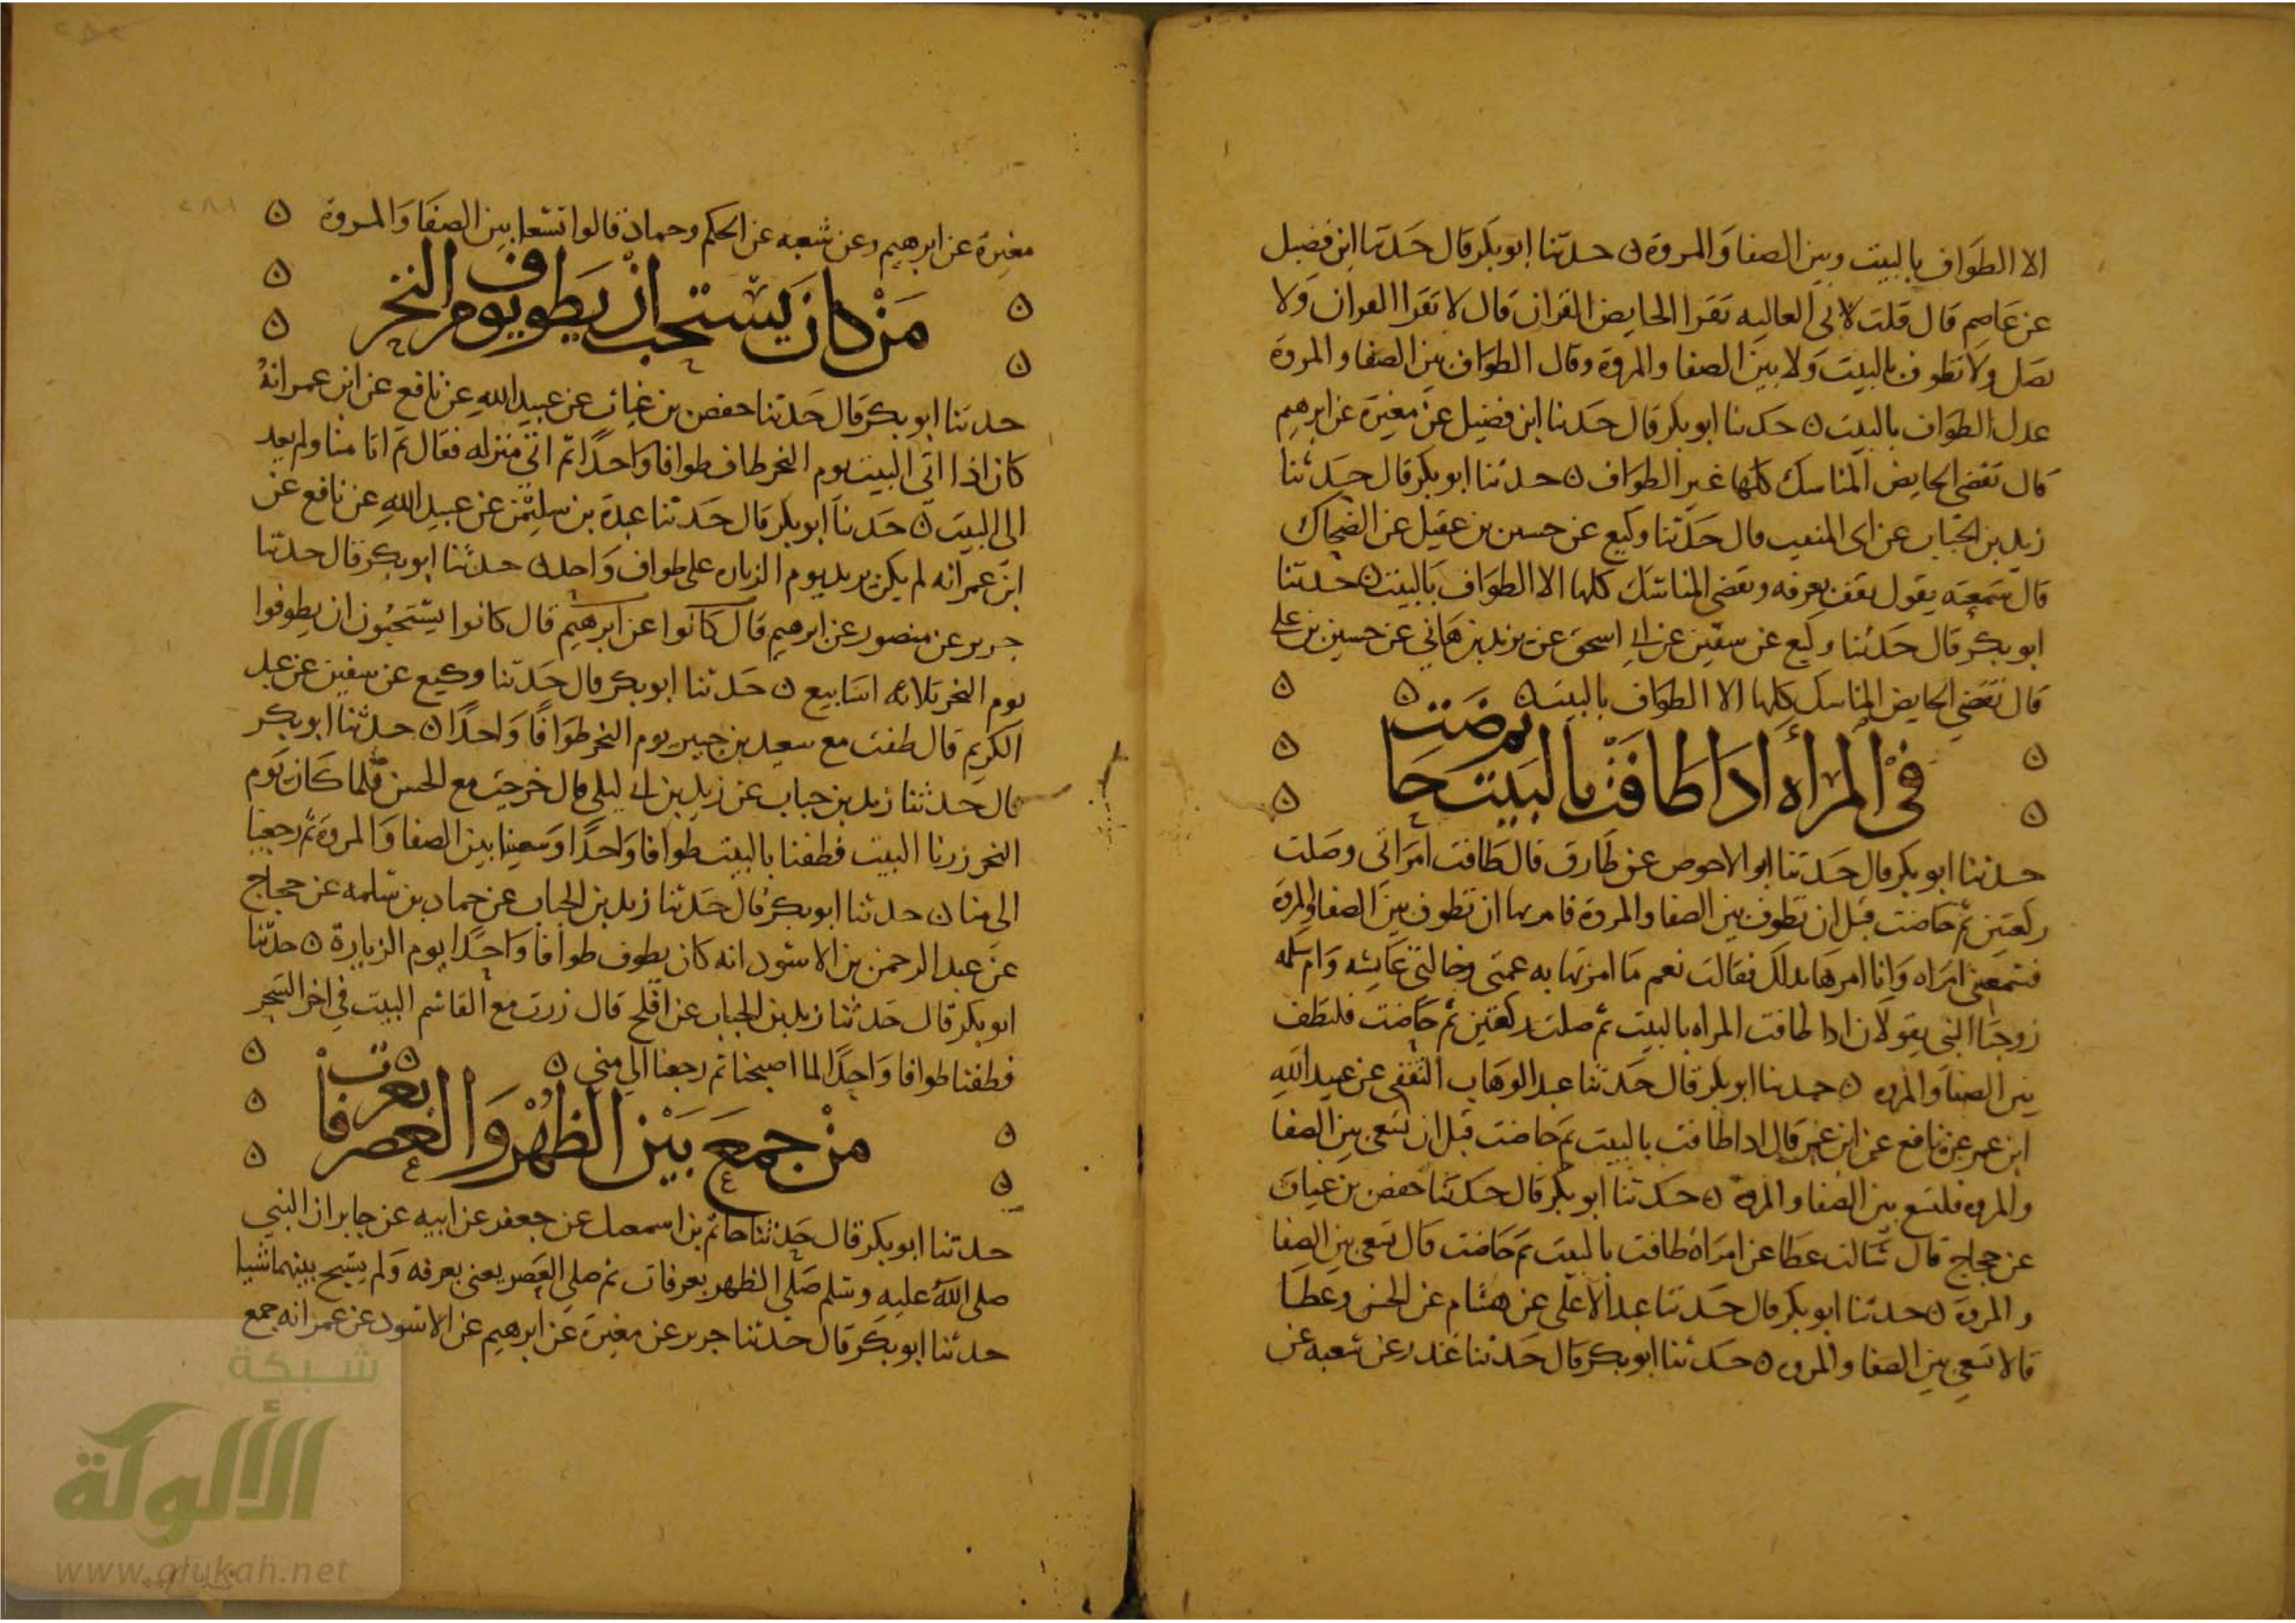 الا الطواف بالبيت وبين الصفا والمروة ن حدثنا ابو بكر قال حدثنا ابن فضيل
عن عاصم قال قلت لابي العاليه تقرا الحايض القران قال لا تقرا القران ولا
تصل ولا تطوف بالبيت ولا بين الصفا والمروة وقال الطواف بين الصفا والمروة
عدل الطواف بالبيت ن حدثنا ابو بكر قال حدثنا ابن فضيل عن مغيرة عن ابرهيم
قال تقضي الحايض المناسك كلها غير الطواف ن حدثنا ابو بكر قال حدثنا
زيد بن الحباب عن ابي المنيب قال حدثنا وكيع عن حسين بن عقيل عن الضحاك
قال سمعته يقول تقف بعرفه وتقضي المناسك كلها الا الطواف بالبيت ن حدثنا
ابو بكر قال حدثنا وكيع عن سفين عن ابي اسحق عن يزيد بن هاني عن حسين بن علي
قال تقضي الحايض المناسك كلها الا الطواف بالبيت ن
في المراه اذا طافت بالبيت حاضت
حدثنا ابو بكر قال حدثنا ابو الاحوص عن طارق قال طافت امراتي وصلت
ركعتين ثم حاضت قبل ان تطوف بين الصفا والمروة فامرتها ان تطوف بين الصفا والمروة
فسمعتني امراه وانا امرها بذلك فقالت نعم ما امرتها به عمتي وخالتي عايشه وام سلمه
زوجتا النبي يقولان اذا طافت المراه بالبيت ثم صلت ركعتين ثم حاضت فلتطف
بين الصفا والمروه ن حدثنا ابو بكر قال حدثنا عبد الوهاب الثقفي عن عبيد الله
ابن عمر عن نافع عن ابن عمر قال اذا طافت بالبيت ثم حاضت قبل ان تسعى بين الصفا
والمروه فلتسع بين الصفا والمروه ن حدثنا ابو بكر قال حدثنا حفص بن غياث
عن حجاج قال سالت عطا عن امراة طافت بالبيت ثم حاضت قال تسعى بين الصفا
والمروة ن حدثنا ابو بكر قال حدثنا عبد الاعلى عن هشام عن الحسن وعطا
قالا تسعى بين الصفا والمروه ن حدثنا ابو بكر قال حدثنا غندر عن شعبه عن
مغيرة عن ابرهيم وعن شعبه عن الحكم وحماد قالوا تسعا بين الصفا والمروة
من كان يستحب ان يطوف يوم النحر
حدثنا ابو بكر قال حدثنا حفص بن غياث عن عبيد الله عن نافع عن ابن عمر انه
كان اذا اتى البيت يوم النحر طاف طوافا واحدا ثم اتى منزله فقال ثم اتا منا ولم يعد
الى البيت ن حدثنا ابو بكر قال حدثنا عبدة بن سليمن عن عبيد الله عن نافع عن
ابن عمر انه لم يكن يزيد يوم الزياره على طواف واحد ن حدثنا ابو بكر قال حدثنا
جرير عن منصور عن ابرهيم قال كانوا عن ابرهيم قال كانوا يستحبون ان يطوفوا
يوم النحر ثلاثه اسابيع ن حدثنا ابو بكر قال حدثنا وكيع عن سفين عن عبد
الكريم قال طفت مع سعيد بن جبير يوم النحر طوافا واحدا ن حدثنا ابو بكر
قال حدثنا زيد بن حباب عن زيد بن ابي ليلى قال خرجت مع الحسن فلما كان يوم
النحر زرنا البيت فطفنا بالبيت طوافا واحدا وسعينا بين الصفا والمروة ثم رجعنا
الى منا ن حدثنا ابو بكر قال حدثنا زيد بن الحباب عن حماد بن سلمه عن حجاج
عن عبد الرحمن بن الاسود انه كان يطوف طوافا واحدا يوم الزيارة ن حدثنا
ابو بكر قال حدثنا زيد بن الحباب عن افلح قال زرت مع القاسم البيت في اخر السحر
فطفنا طوافا واحدا لما اصبحنا ثم رجعنا الى منى ن
من جمع بين الظهر والعصر بعرفات
حدثنا ابو بكر قال حدثنا حاتم بن اسمعيل عن جعفر عن ابيه عن جابر ان النبي
صلى الله عليه وسلم صلى الظهر بعرفات ثم صلى العصر يعني بعرفه ولم يسبح بينهما شيا
حدثنا ابو بكر قال حدثنا جرير عن مغيرة عن ابرهيم عن الاسود عن عمر انه جمع
شبكة
الألوكة
www.alukah.net